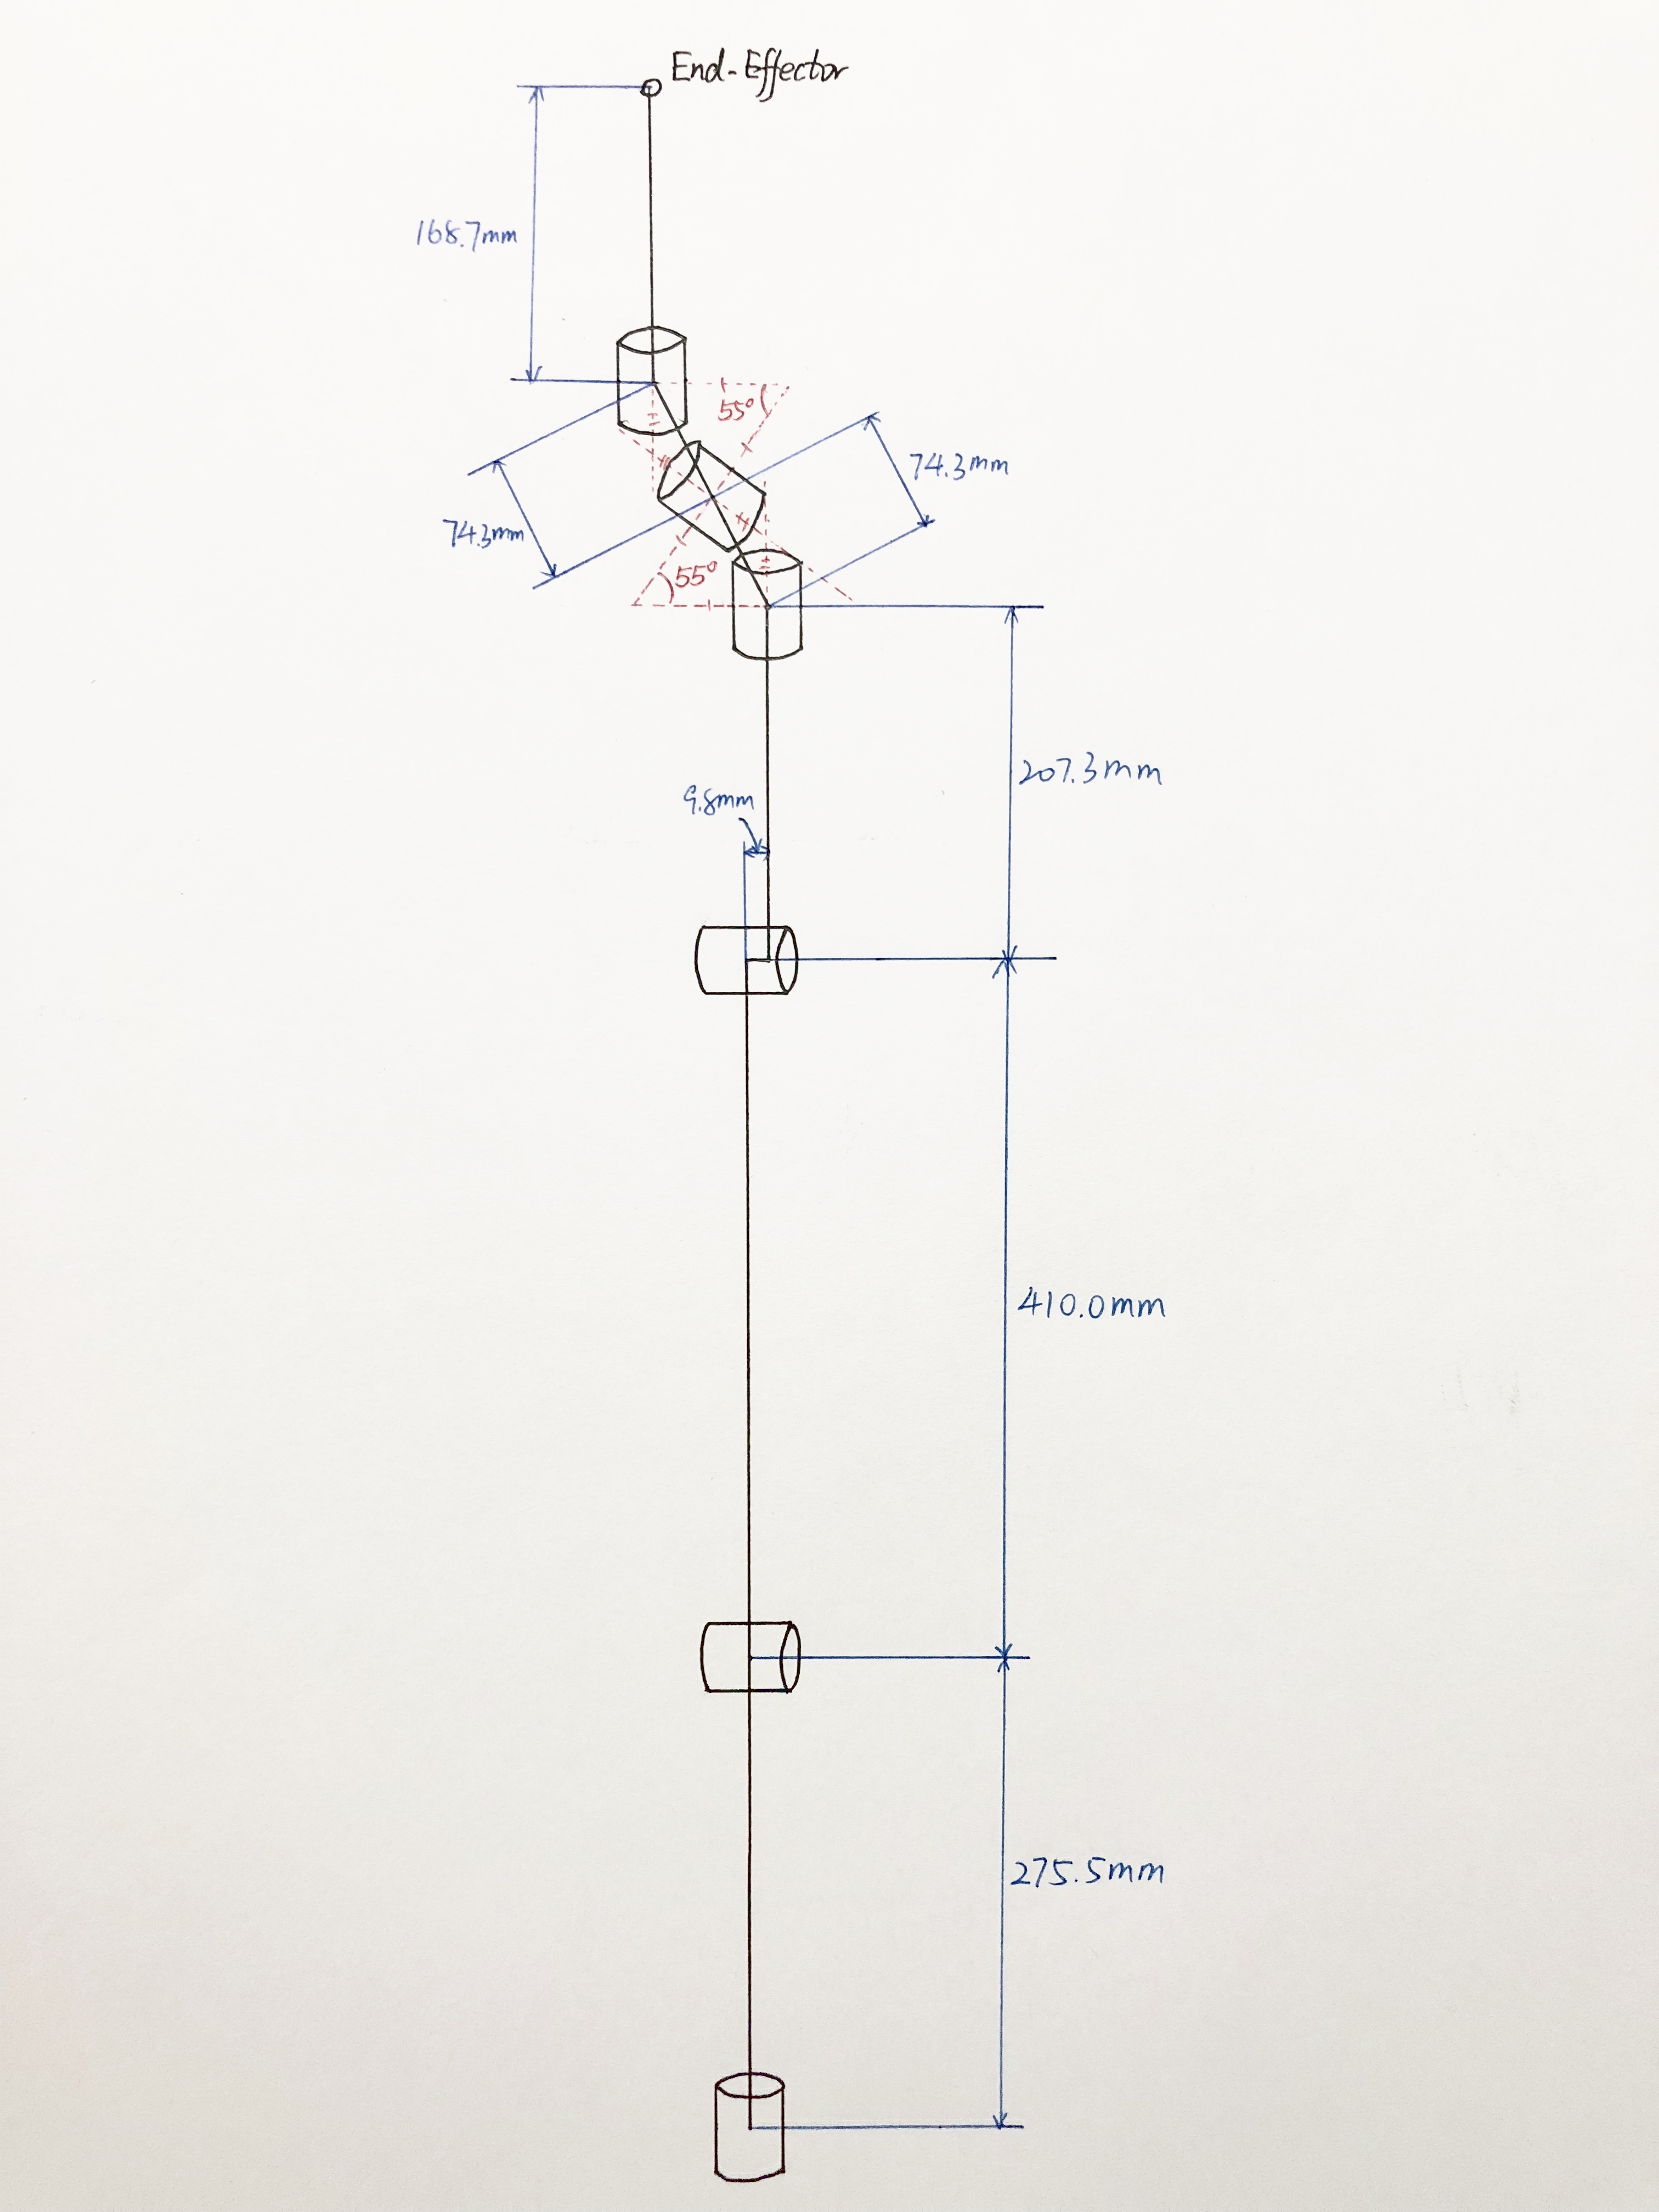 End-Effector
168.7mm
55°
74.3mm
74.3mm
55°
207.3mm
9.8mm
410.0mm
275.5mm